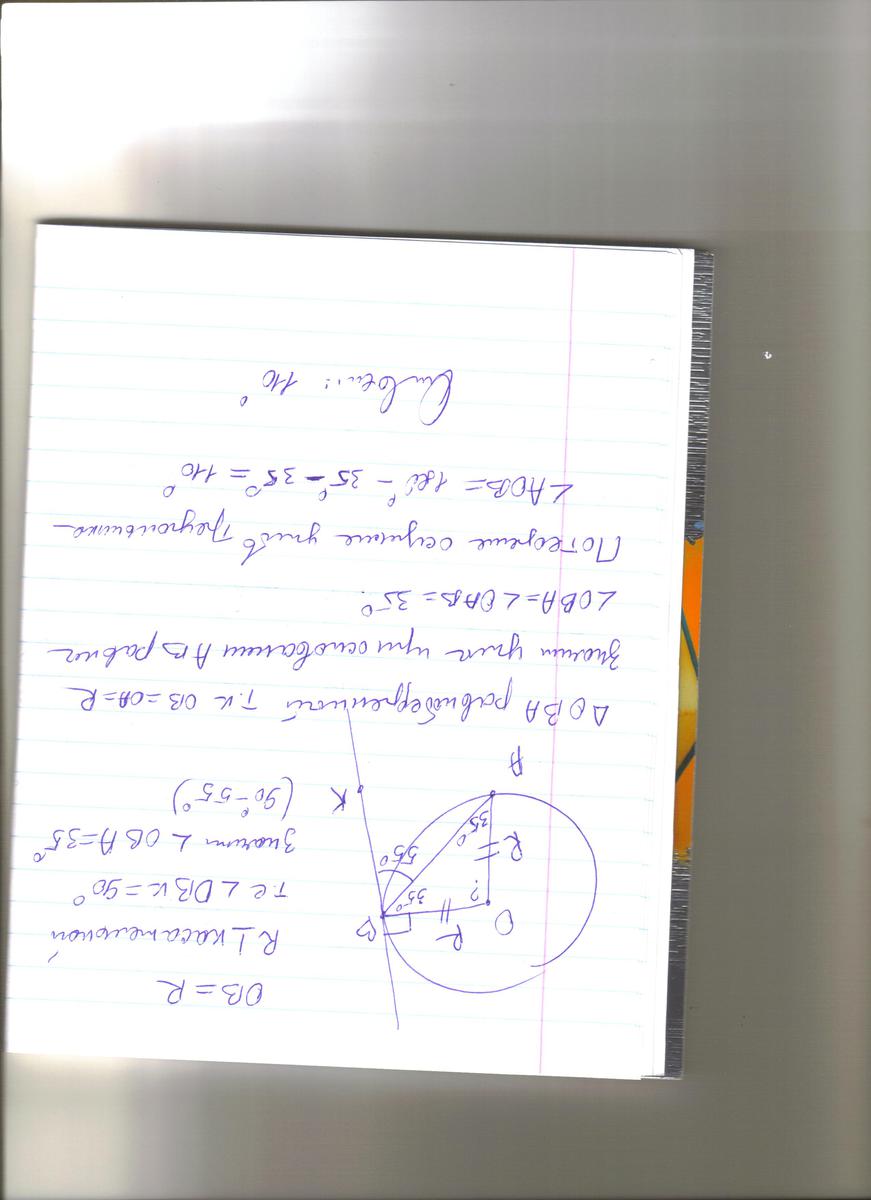 OB = R
R ⊥ касательной
т.е ∠OBK = 90°
Значит ∠OBA = 35°
(90° - 55°)
O
R
B
?
35°
55°
R
35°
A
K
Δ OBA равнобедренный т.к OB = OA = R
Значит углы при основании AB равны
∠OBA = ∠OAB = 35°.
По теореме о сумме углов треугольника
∠AOB = 180° - 35° - 35° = 110°
Ответ: 110°